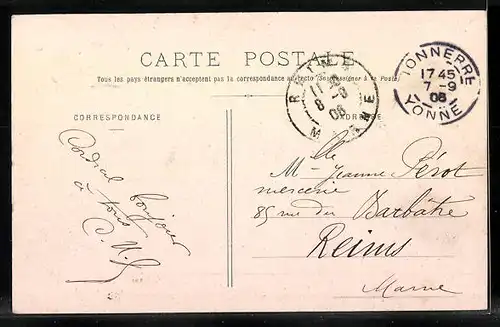 CARTE POSTALE
Tous les pays étrangers n'acceptent pas la correspondance au recto (Se renseigner à la Poste)
CORRESPONDANCE
ADRESSE
TONNERRE
17 45
7 - 9
06
YONNE
11
8 - 9
06
Cordial bonjour
à tous
Mlle Jeanne Pérot
mercerie
85 rue du Barbâtre
Reims
Marne